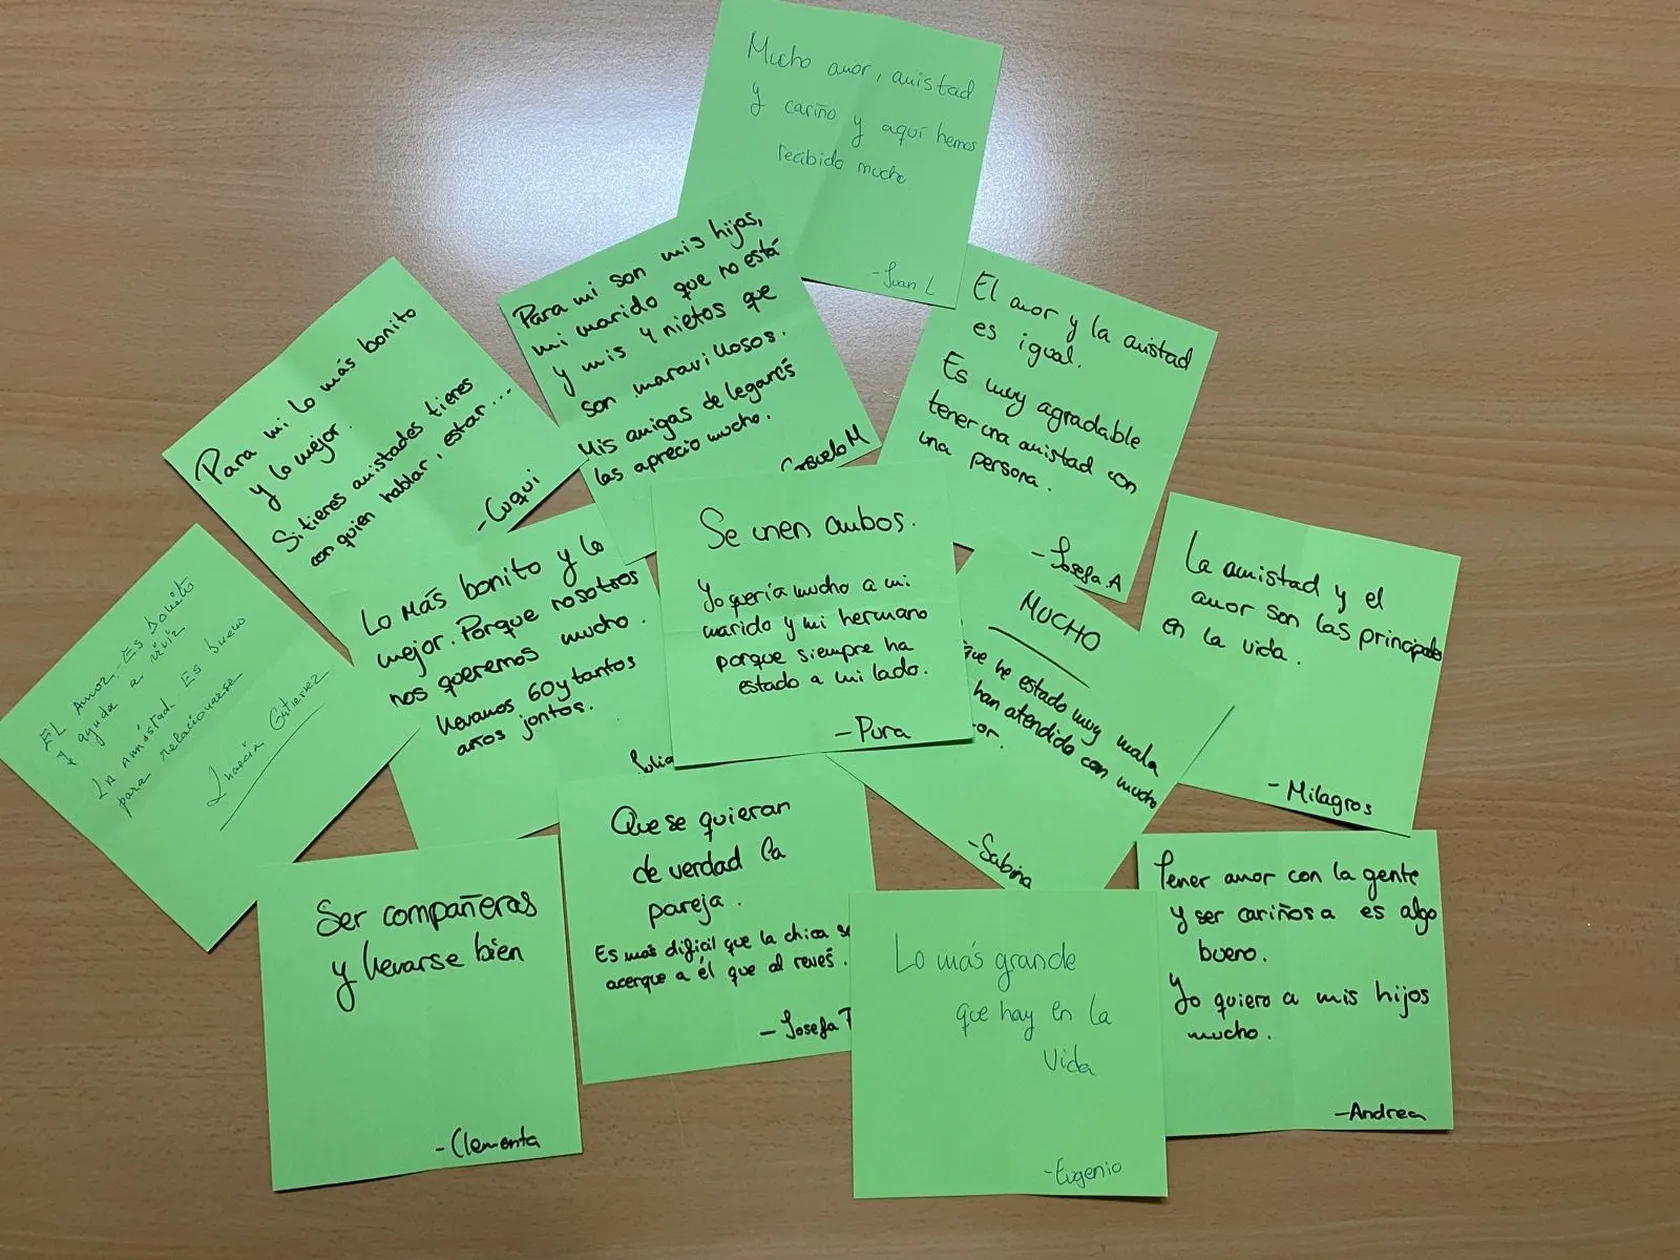 Mucho amor, amistad
y cariño y aquí hemos
recibido mucho
-Juan L
Para mi son mis hijas,
mi marido que no está
y mis 4 nietos que
son maravillosos.
Mis amigas de leganés
las aprecio mucho.
Consuelo M
El amor y la amistad
es igual.
Es muy agradable
tener una amistad con
una persona.
-Josefa.A
Para mi lo más bonito
y lo mejor.
Si tienes amistades tienes
con quien hablar, estar...
-Cuqui
EL Amor-Es Bonito
y ayuda a vivir
LA Amistad Es bueno
para relacionarse
Gutierrez
Lo más bonito y lo
mejor. Porque nosotros
nos queremos mucho.
llevamos 60 y tantos
años juntos.
Julia
Se unen ambos.
Yo quería mucho a mi
marido y mi hermano
porque siempre ha
estado a mi lado.
-Pura
MUCHO
que he estado muy mala
han atendido con mucho
or.
-Sabina
La amistad y el
amor son las principales
en la vida.
-Milagros
Ser compañeras
y llevarse bien
-Clementa
Que se quieran
de verdad la
pareja.
Es más dificil que la chica se
acerque a él que al revés.
-Josefa T
Lo más grande
que hay en la
vida
-Eugenio
Tener amor con la gente
y ser cariñosa es algo
bueno.
Yo quiero a mis hijos
mucho.
-Andrea